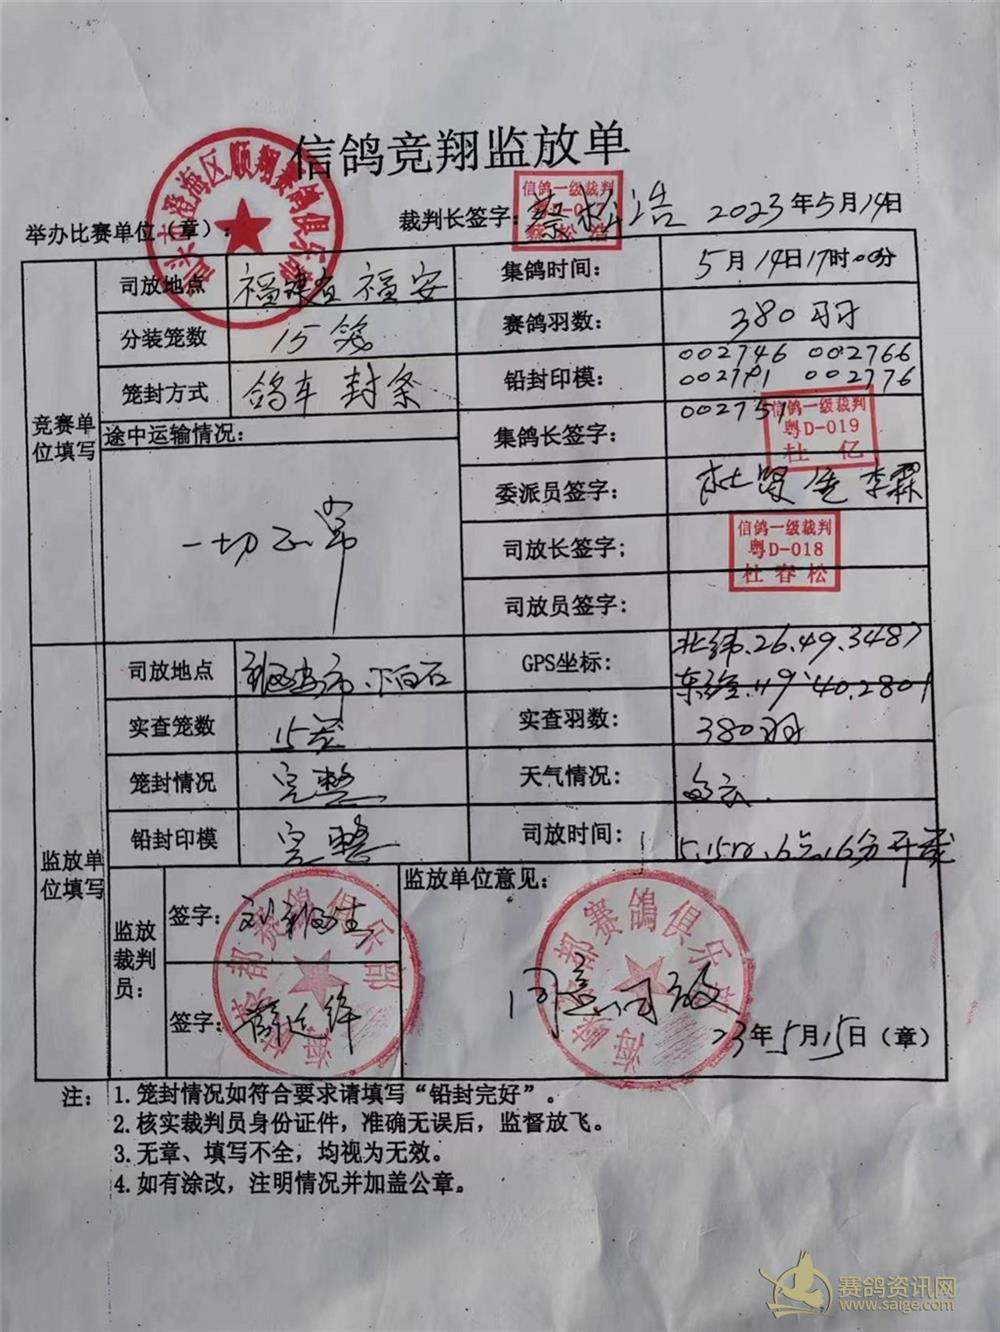 信鸽竞翔监放单
汕头市澄海区顺翔赛鸽俱乐部
举办比赛单位(章): 裁判长签字: 蔡松浩 2023年5月14日
信鸽一级裁判
蔡松浩
竞赛单位填写
司放地点 福建省福安 集鸽时间: 5月14日17时00分
分装笼数 15笼 赛鸽羽数: 380羽
笼封方式 鸽车封条 铅封印模: 002746 002766
002771 002776
002751
途中运输情况: 集鸽长签字:
信鸽一级裁判
粤D-019
杜亿
一切正常
委派员签字: 李霖
司放长签字:
信鸽一级裁判
粤D-018
杜春松
司放员签字:
监放单位填写
司放地点 福安市.下白石 GPS坐标: 北纬.26.49.3487
东经.119.40.2801
实查笼数 15笼 实查羽数: 380羽
笼封情况 完整 天气情况: 多云.
铅封印模 完整 司放时间: 5.15日.6点16分开笼
监放裁判员:
签字:
签字:
监放单位意见:
同意司放
23年5月15日(章)
赛鸽俱乐部
赛鸽俱乐部
注: 1.笼封情况如符合要求请填写“铅封完好”。
2.核实裁判员身份证件，准确无误后，监督放飞。
3.无章、填写不全，均视为无效。
4.如有涂改，注明情况并加盖公章。
赛鸽资讯网
www.saige.com